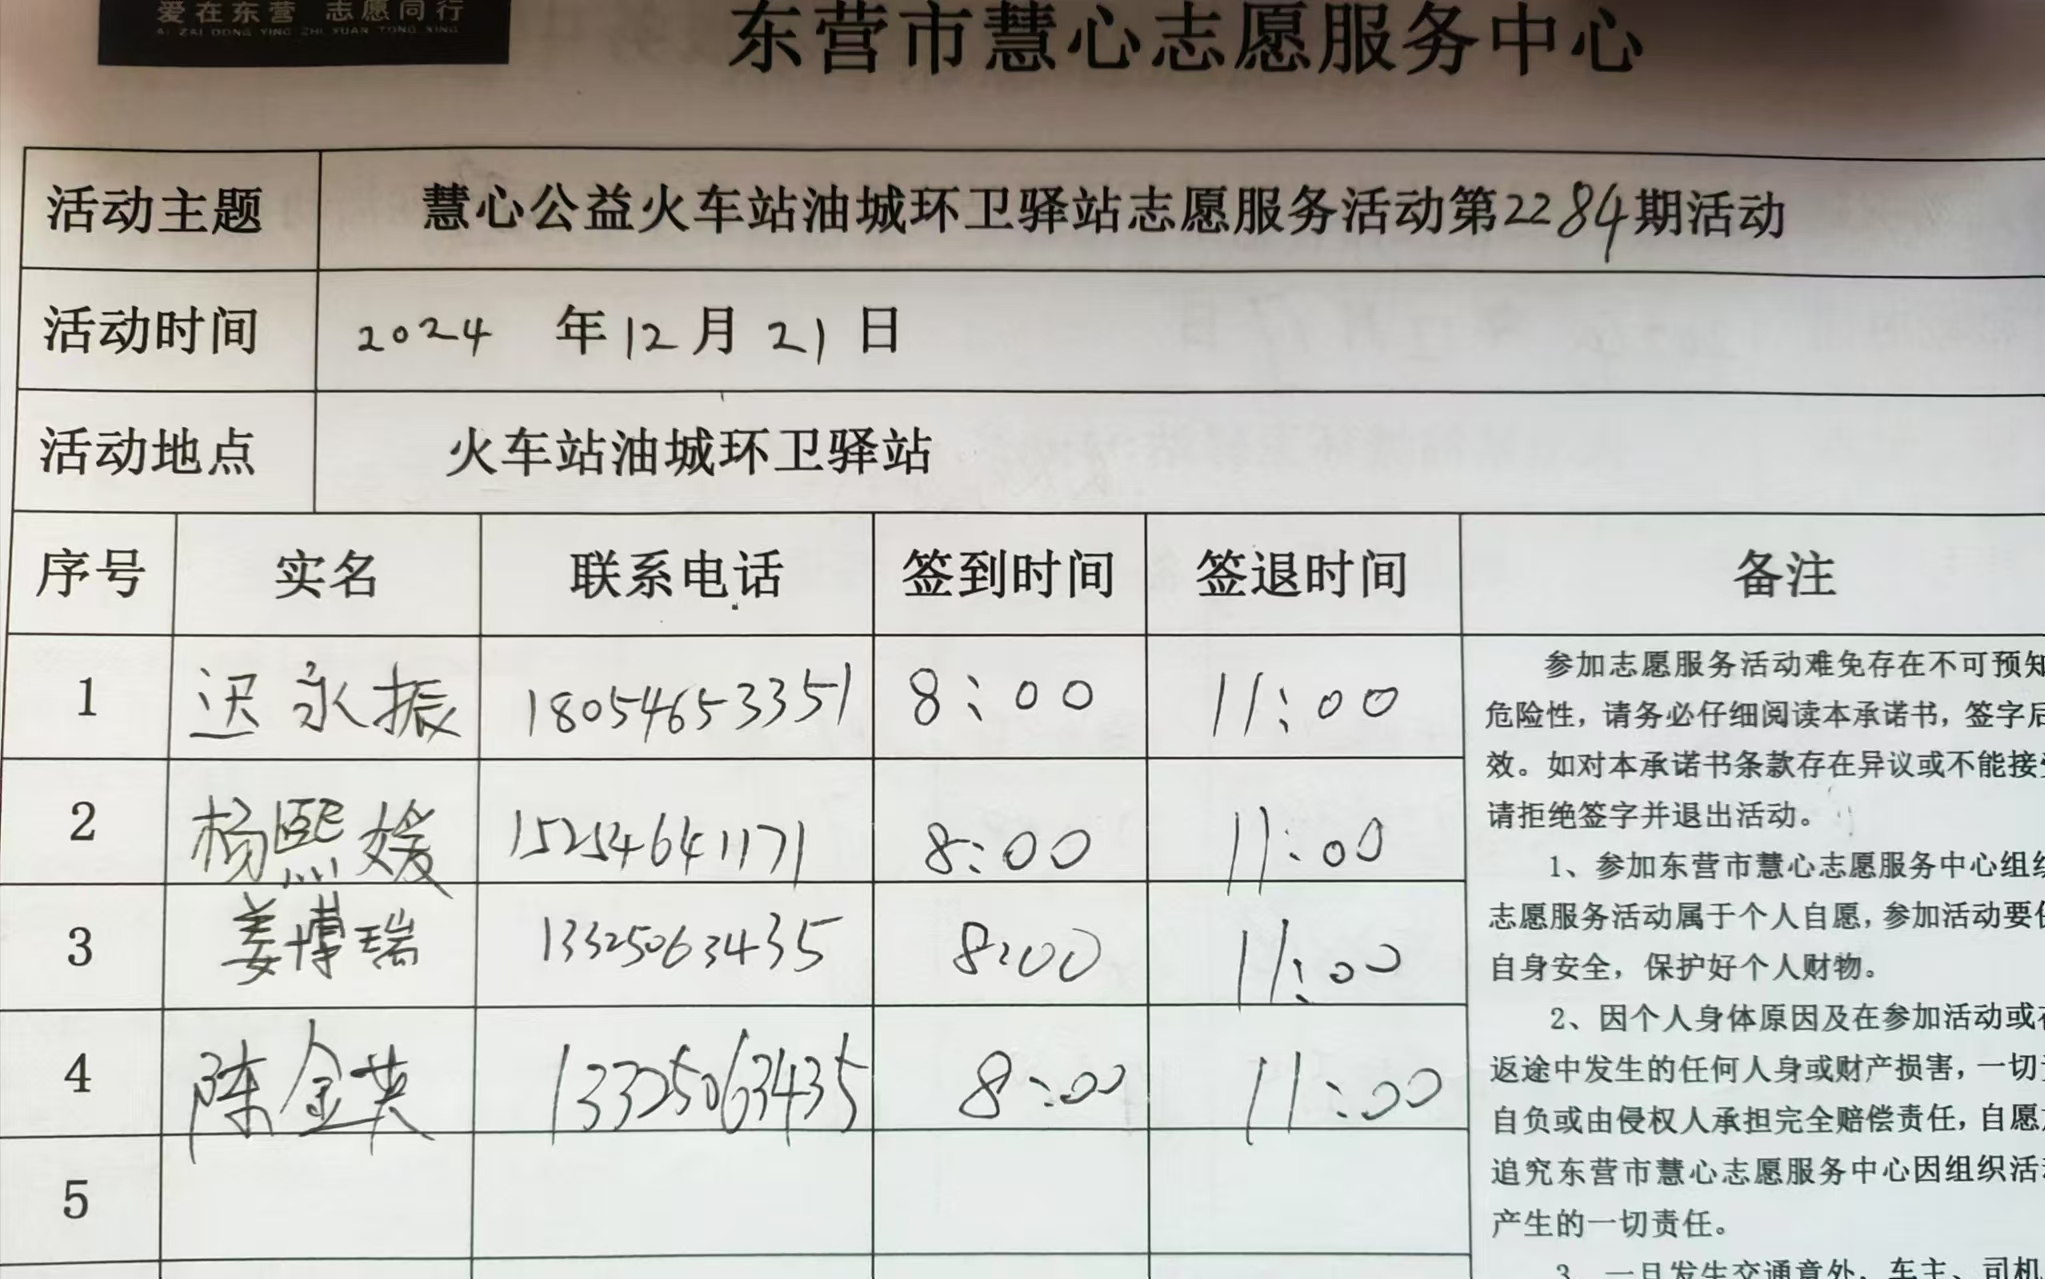 爱在东营 志愿同行
AI ZAI DONG YING ZHI YUAN TONG XING
东营市慧心志愿服务中心
活动主题 慧心公益火车站油城环卫驿站志愿服务活动第2284期活动
活动时间 2024 年 12 月 21 日
活动地点 火车站油城环卫驿站
序号 实名 联系电话 签到时间 签退时间 备注
1 迟永振 18054653351 8:00 11:00
2 杨熙媛 15254641171 8:00 11:00
3 姜博瑞 13325063435 8:00 11:00
4 陈金英 13325063435 8:00 11:00
5
参加志愿服务活动难免存在不可预知
危险性，请务必仔细阅读本承诺书，签字后
效。如对本承诺书条款存在异议或不能接受
请拒绝签字并退出活动。
1、参加东营市慧心志愿服务中心组织
志愿服务活动属于个人自愿，参加活动要保
自身安全，保护好个人财物。
2、因个人身体原因及在参加活动或在
返途中发生的任何人身或财产损害，一切责
自负或由侵权人承担完全赔偿责任，自愿放
追究东营市慧心志愿服务中心因组织活动
产生的一切责任。
3、一旦发生交通意外，车主、司机